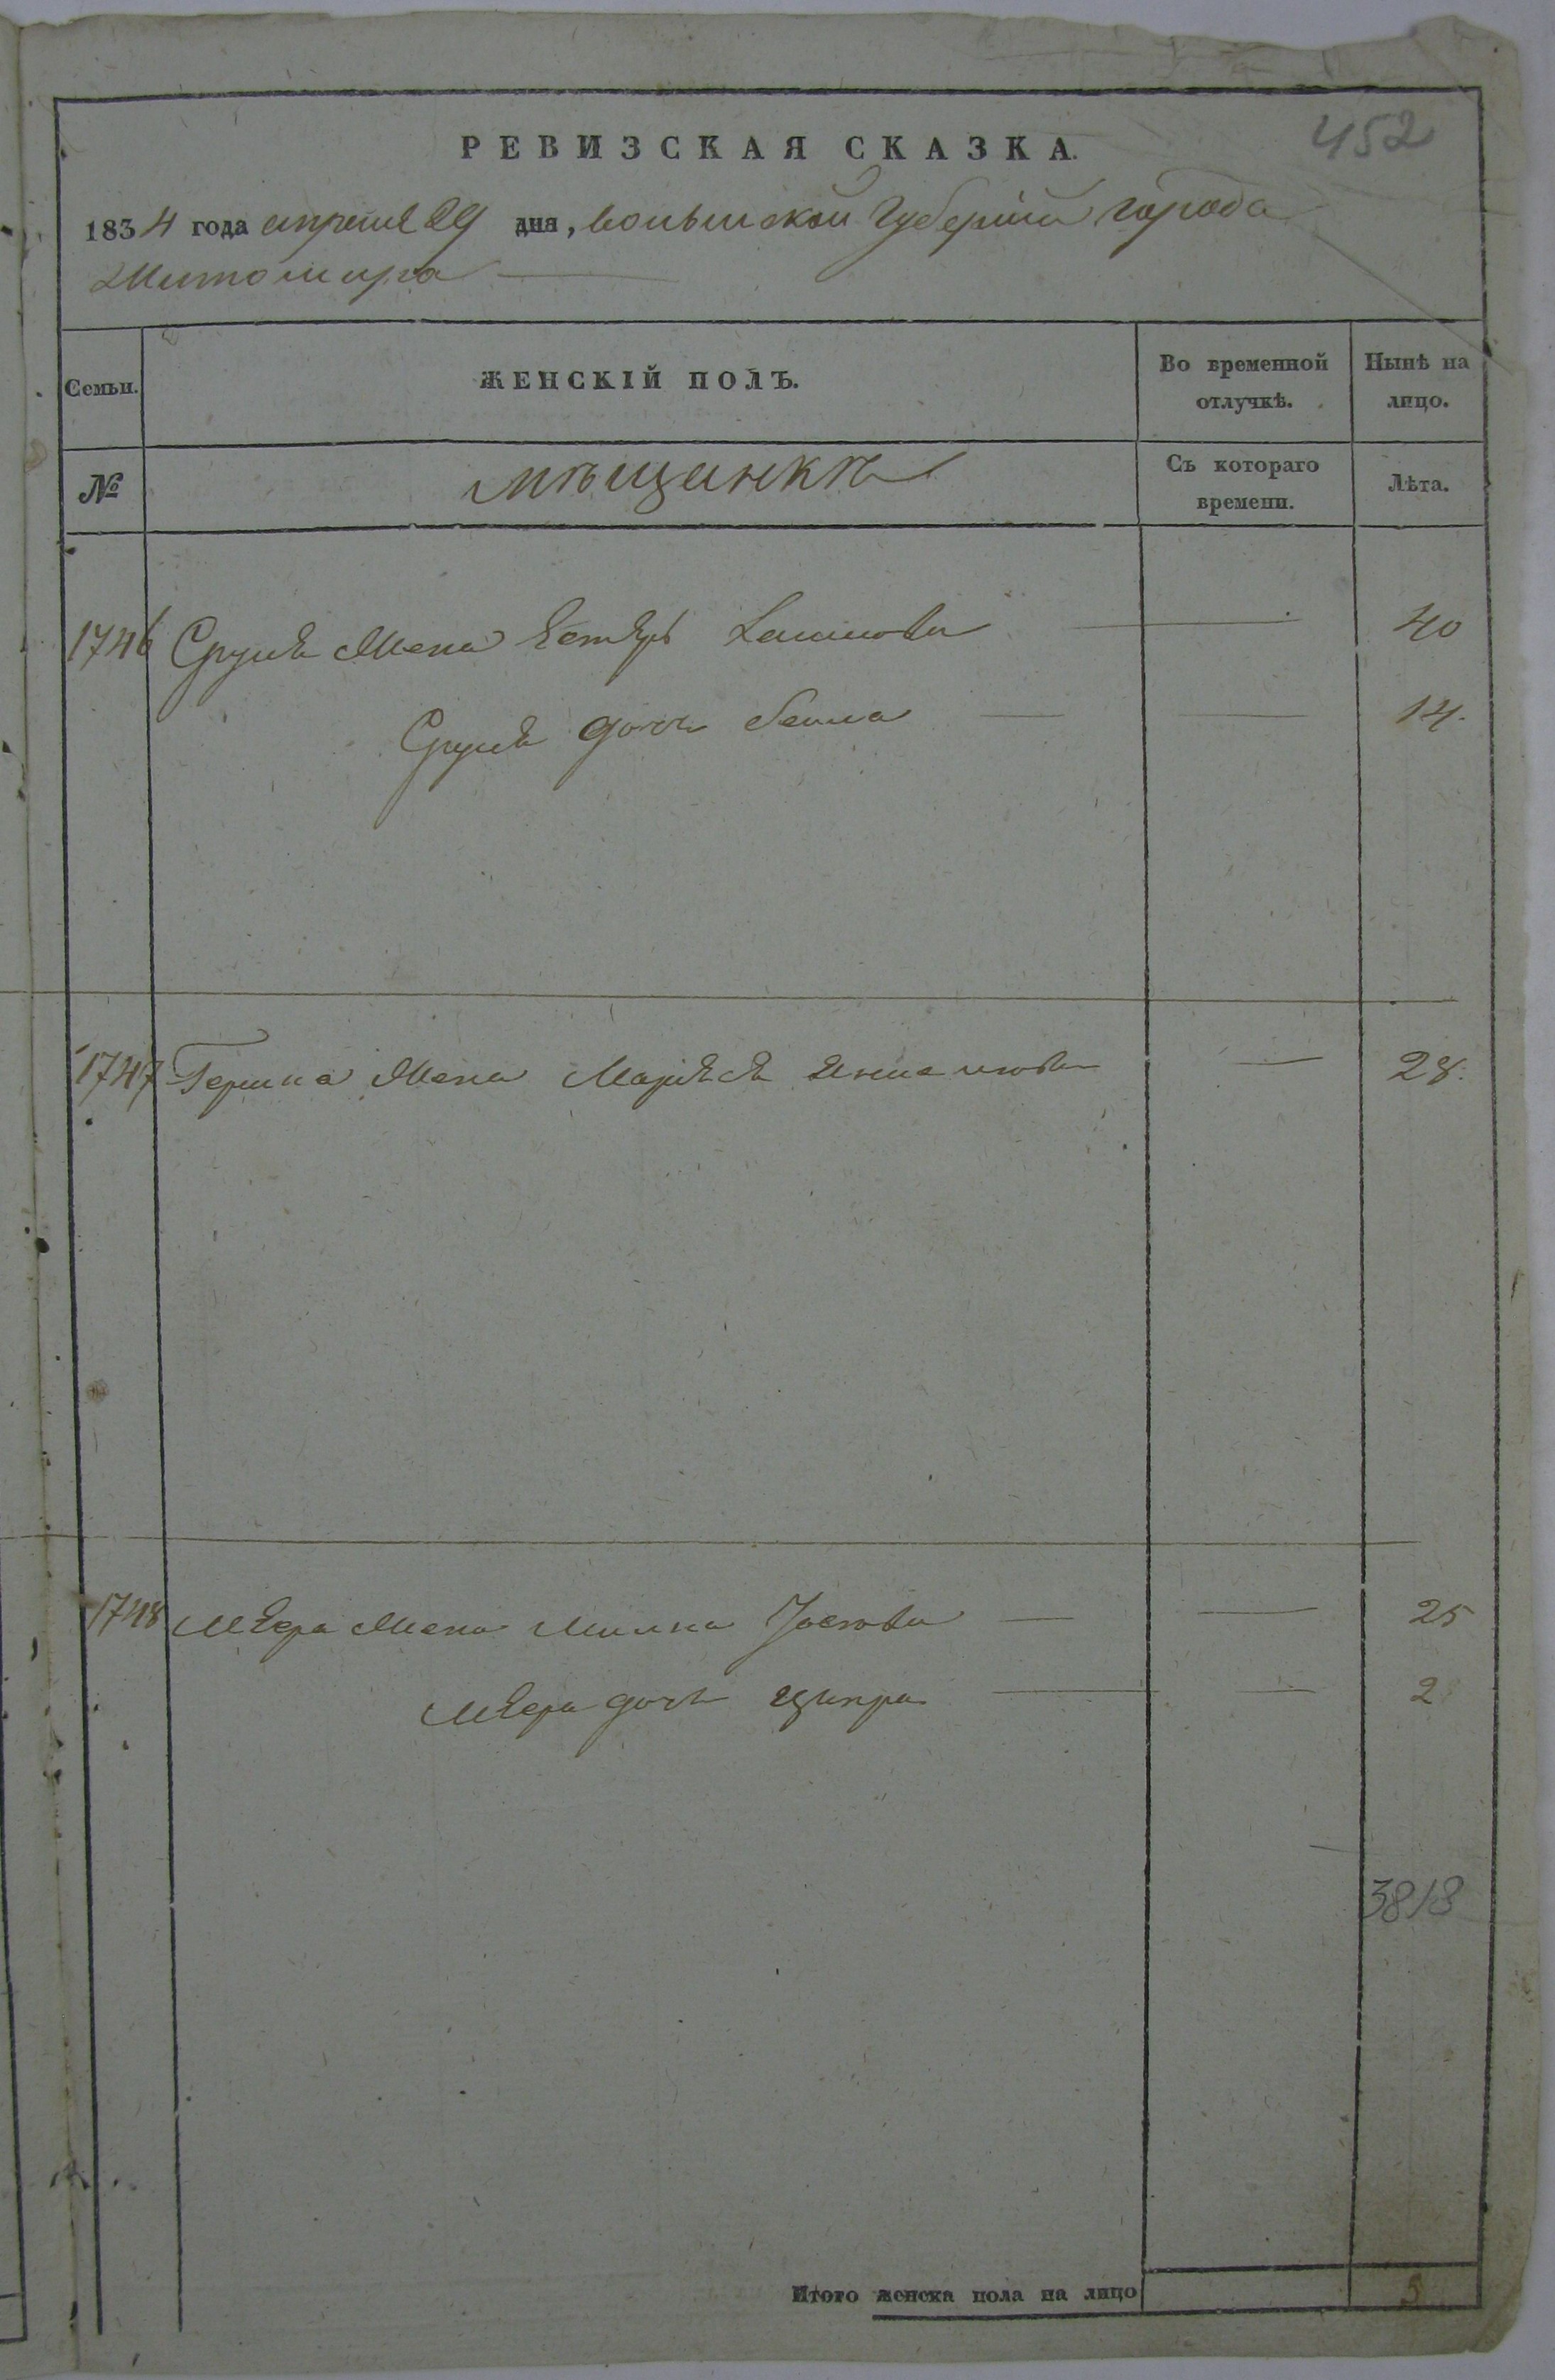 452
РЕВИЗСКАЯ СКАЗКА.
1834 года апреля 29 дня, волынской Губерніи города
Житомира
Семьи.
ЖЕНСКІЙ ПОЛЪ.
Во временной отлучкѣ.
Нынѣ на лицо.
№
мѣщанкѣ
Съ котораго времени.
Лѣта.
1746 Сруля Жена Естѣръ 40
Сруля дочь Бейла 14.
1747 Гершка Жена 28.
1748 мѣера Жена Милка Іосіова 25
мѣера дочь ципра 2
3818
Итого женска пола на лицо 5